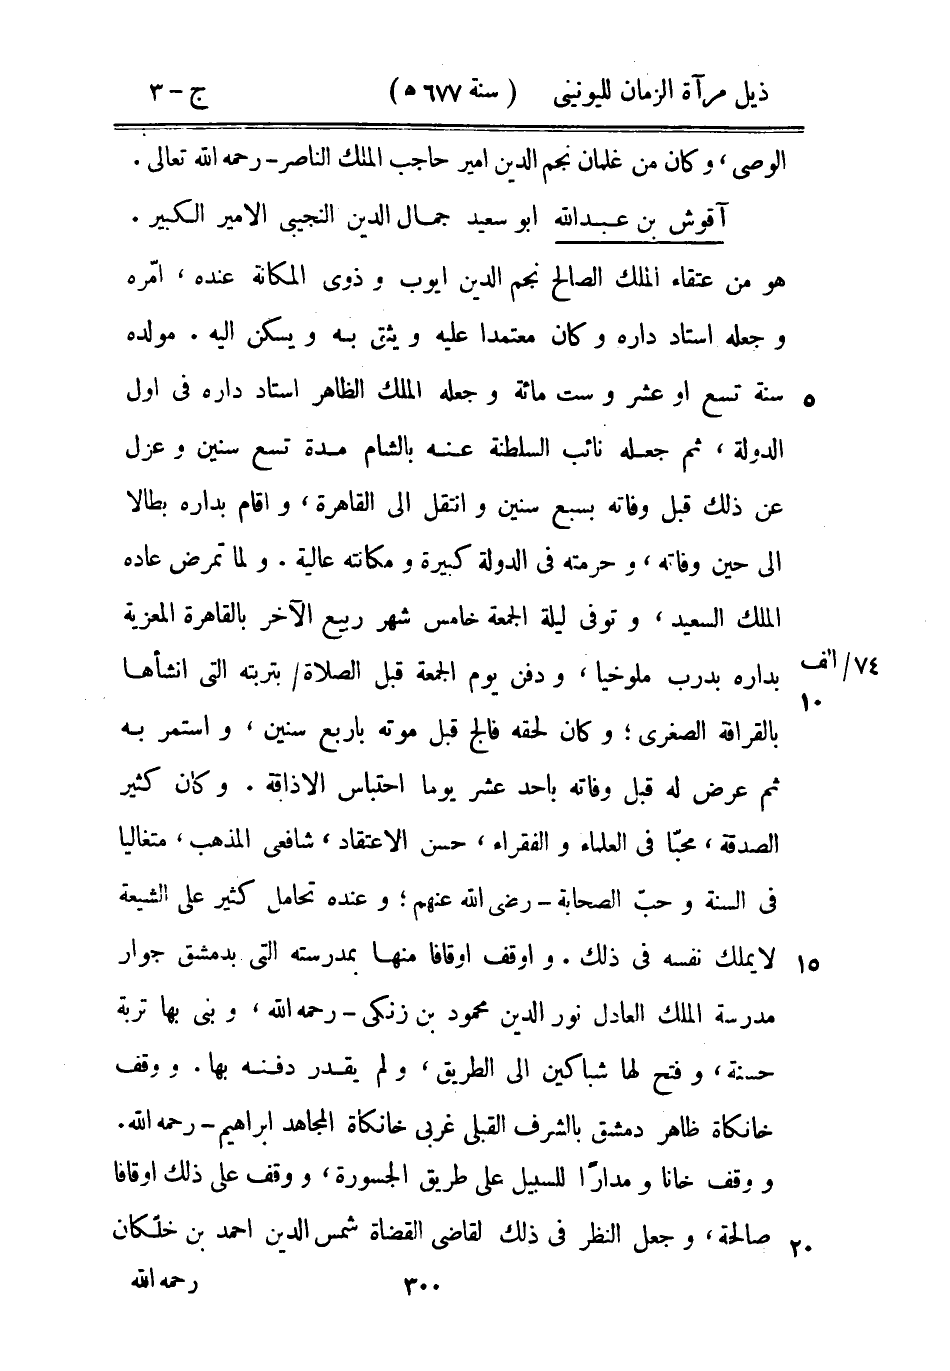 ذيل مرآة الزمان لليونينى ( سنة ٦٧٧ ه ) ج - ٣
الوصى ، و كان من غلمان نجم الدين امير حاجب الملك الناصر - رحمه الله تعالى .
آقوش بن عبد الله ابو سعيد جمال الدين النجيبى الامير الكبير .
هو من عتقاء الملك الصالح نجم الدين ايوب و ذوى المكانة عنده ، امّره
و جعله استاد داره و كان معتمدا عليه و يثق به و يسكن اليه . مولده
٥ سنة تسع او عشر و ست مائة و جعله الملك الظاهر استاد داره فى اول
الدولة ، ثم جعله نائب السلطنة عنه بالشام مدة تسع سنين و عزل
عن ذلك قبل وفاته بسبع سنين و انتقل الى القاهرة ، و اقام بداره بطالا
الى حين وفاته ، و حرمته فى الدولة كبيرة و مكانته عالية . و لما تمرض عاده
الملك السعيد ، و توفى ليلة الجمعة خامس شهر ربيع الآخر بالقاهرة المعزية
٧٤/ الف بداره بدرب ملوخيا ، و دفن يوم الجمعة قبل الصلاة / بتربته التى انشأها
١٠ بالقرافة الصغرى ؛ و كان لحقه فالج قبل موته باربع سنين ، و استمر به
ثم عرض له قبل وفاته باحد عشر يوما احتباس الاذاقة . و كان كثير
الصدقة ، محبّا فى العلماء و الفقراء ، حسن الاعتقاد ، شافعى المذهب ، متغاليا
فى السنة و حبّ الصحابة - رضى الله عنهم ؛ و عنده تحامل كثير على الشيعة
١٥ لايملك نفسه فى ذلك . و اوقف اوقافا منها بمدرسته التى بدمشق جوار
مدرسة الملك العادل نور الدين محمود بن زنكى - رحمه الله ، و بنى بها تربة
حسنة ، و فتح لها شباكين الى الطريق ، و لم يقدر دفنه بها . و وقف
خانكاة ظاهر دمشق بالشرف القبلى غربى خانكاة المجاهد ابراهيم - رحمه الله .
و وقف خانا و مدارًا للسبيل على طريق الجسورة ، و وقف على ذلك اوقافا
٢٠ صالحة ، و جعل النظر فى ذلك لقاضى القضاة شمس الدين احمد بن خلّكان
٣٠٠ رحمه الله